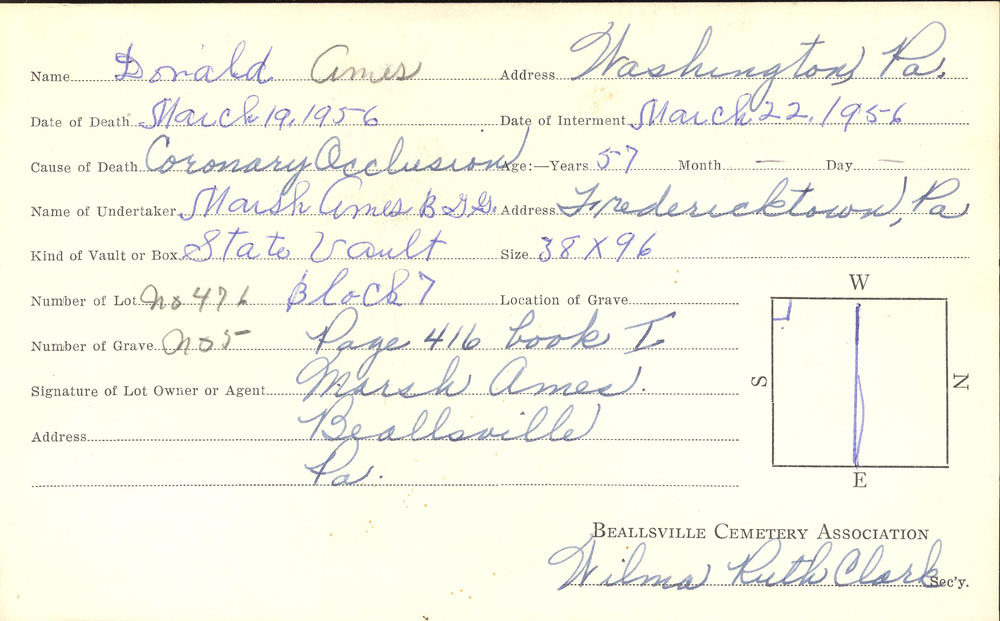 Name Donald Ames Address Washington, Pa.
Date of Death March 19, 1956 Date of Interment March 22, 1956
Cause of Death Coronary Occlusion Age:—Years 57 Month — Day —
Name of Undertaker Marsh Ames Address Fredericktown, Pa
Kind of Vault or Box State Vault Size 38 X 96
Number of Lot No 476 Block 7 Location of Grave
W
Number of Grave No 5 Page 416 book I
Signature of Lot Owner or Agent Marsh Ames.
S N
Address Beallsville
Pa.
E
BEALLSVILLE CEMETERY ASSOCIATION
Wilma Ruth Clark Sec'y.